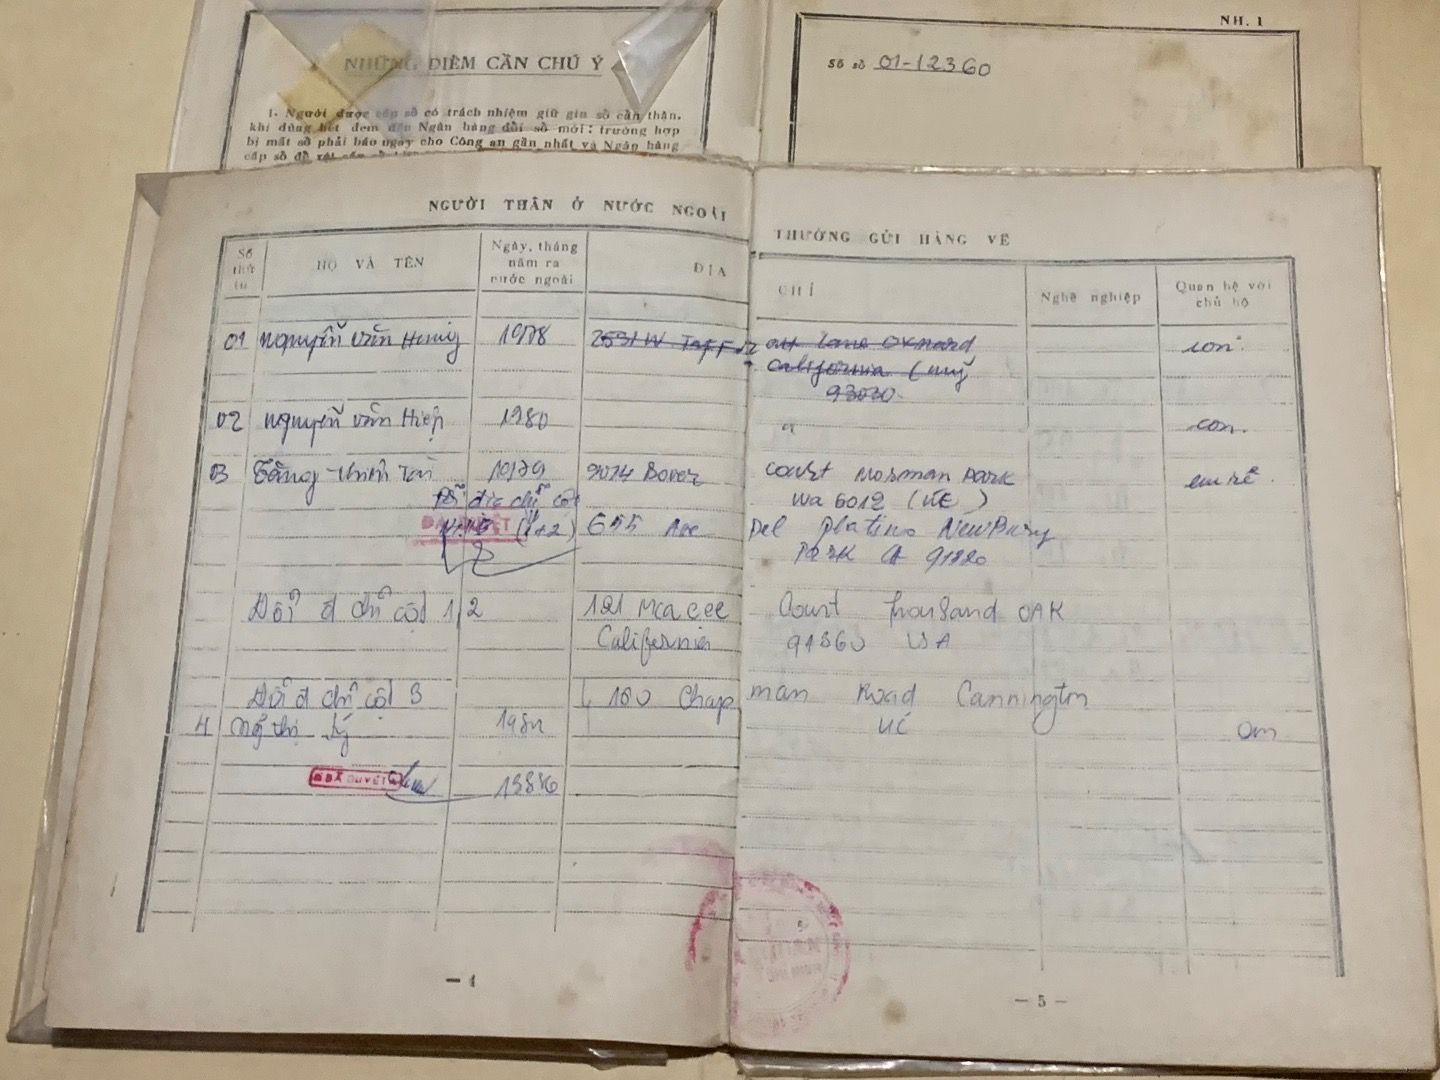 NHỮNG ĐIỂM CẦN CHÚ Ý
1. Người được cấp sổ có trách nhiệm giữ gìn sổ cẩn thận,
khi dùng hết đem đến Ngân hàng đổi sổ mới; trường hợp
bị mất sổ phải báo ngay cho Công an gần nhất và Ngân hàng
cấp sổ để
NH. 1
Số sổ 01-12360
NGƯỜI THÂN Ở NƯỚC NGOÀI THƯỜNG GỬI HÀNG VỀ
Số thứ tự
HỌ VÀ TÊN
Ngày, tháng năm ra nước ngoài
ĐỊA CHỈ
Nghề nghiệp
Quan hệ với chủ hộ
01 Nguyễn Văn Hùng 1978 2531 W lane Oxnard con
California (Mỹ
93030
02 Nguyễn Văn Hiệp 1980 " con
03 1979 9014 Court Mosman Park em rể
Wa 6012 (ÚC)
Đổi địa chỉ cột
(1+2) 655 Ave Del Platino NewBury
PARK CA 91320
Đổi đ chỉ cột 1, 2 121 Mcacee Court Thousand OAK
California 91360 USA
Đổi đ chỉ cột 3 160 Chapman Road Cannington
ÚC
4 thị Lý
ĐÃ DUYỆT
— 4
— 5 —